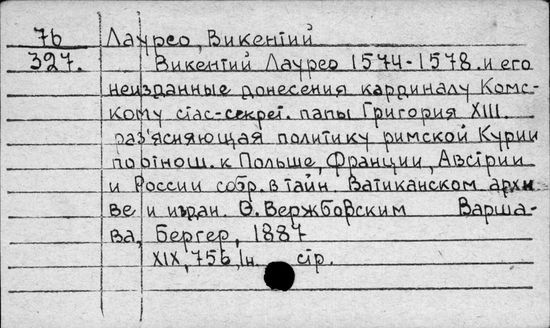 76 Лаурео, Викентий
327. Викентий Лаурео 1574-1578. и его
неизданные донесения кардиналу Комс-
кому стас-секрет. папы Григория XIII.
раз'ясняющая политику римской Курии
по отнош. к Польше, Франции, Австрии
и России собр. в тайн. Ватиканском архи
ве и издан. Ѳ. Вержбовским Варша-
ва, Бергер, 1887
XIX, 756, Iн. стр.